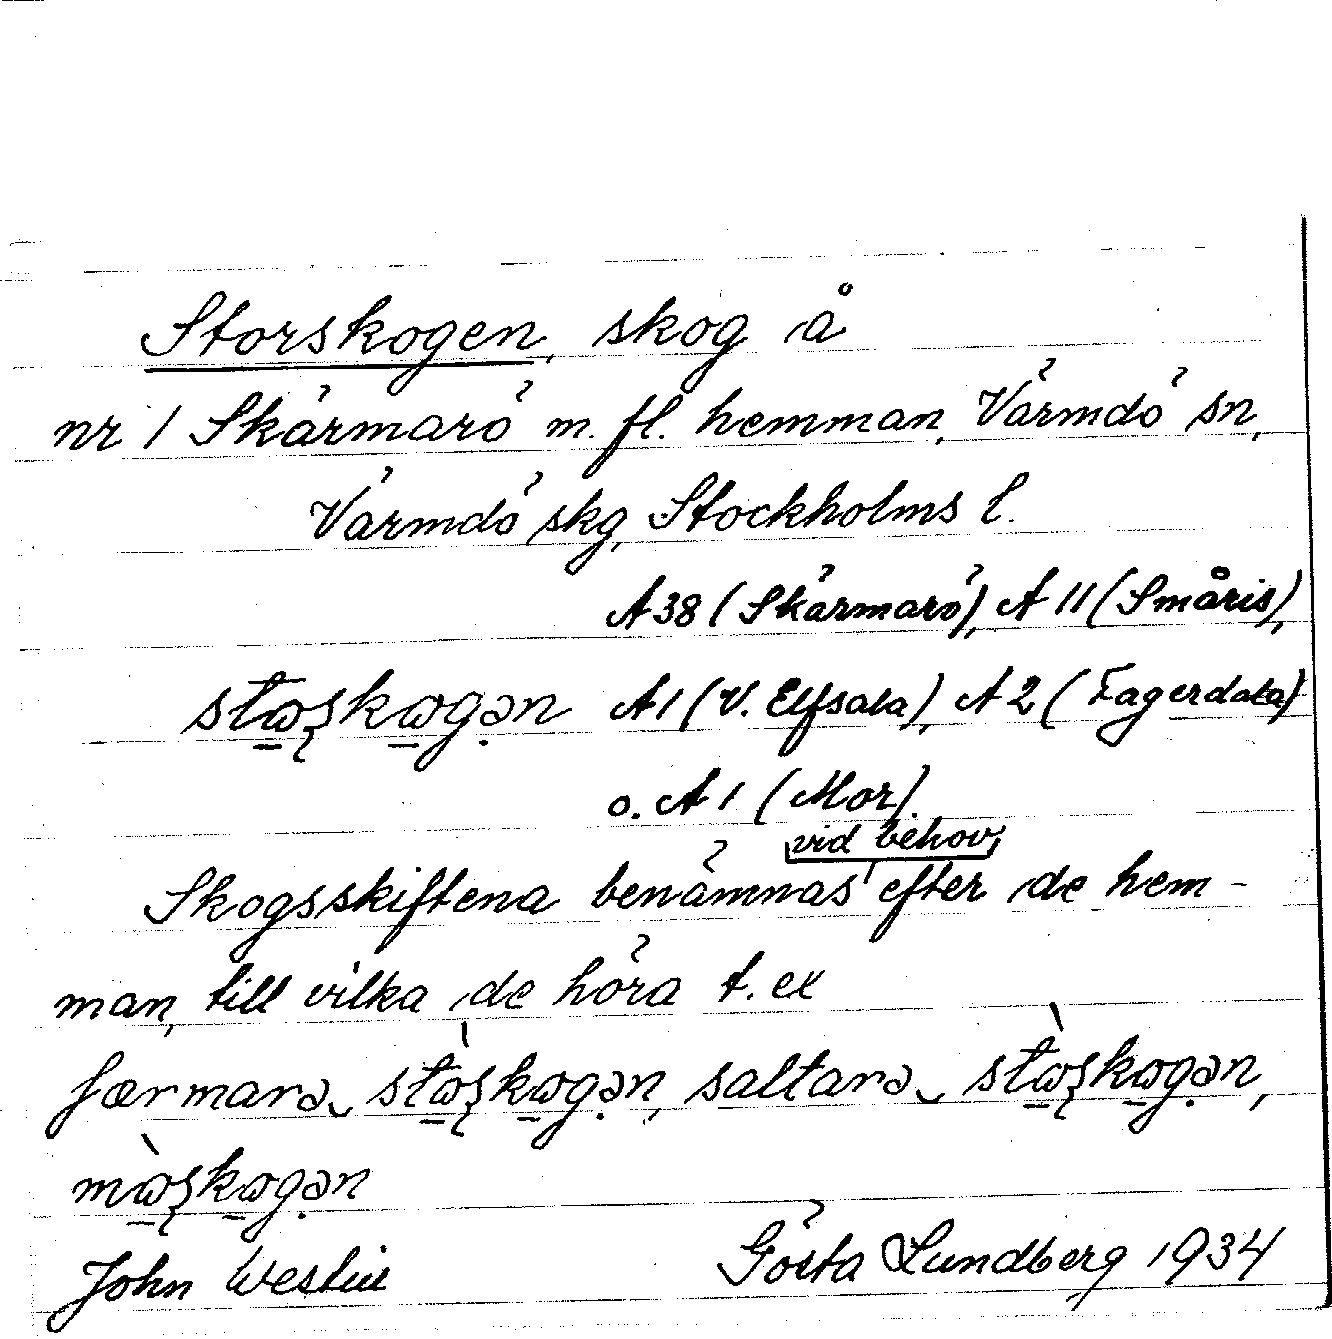 Storskogen, skog å
nr 1 Skärmarö m. fl. hemman, Värmdö sn,
Värmdö skg, Stockholms l.
A 38 (Skärmarö), A 11 (Småris),
stɷʂkɷgən A 1 (V. Elfsala), A 2 (Fagerdala)
o. A 1 (Mor).
vid behov
Skogsskiftena benämnas efter de hem-
man, till vilka de höra t. ex
færmarə stɷ̀ʂkɷgən, saltarə stɷ̀ʂkɷgən,
mɷ̀ʂkɷgən
John Westin Gösta Lundberg 1934